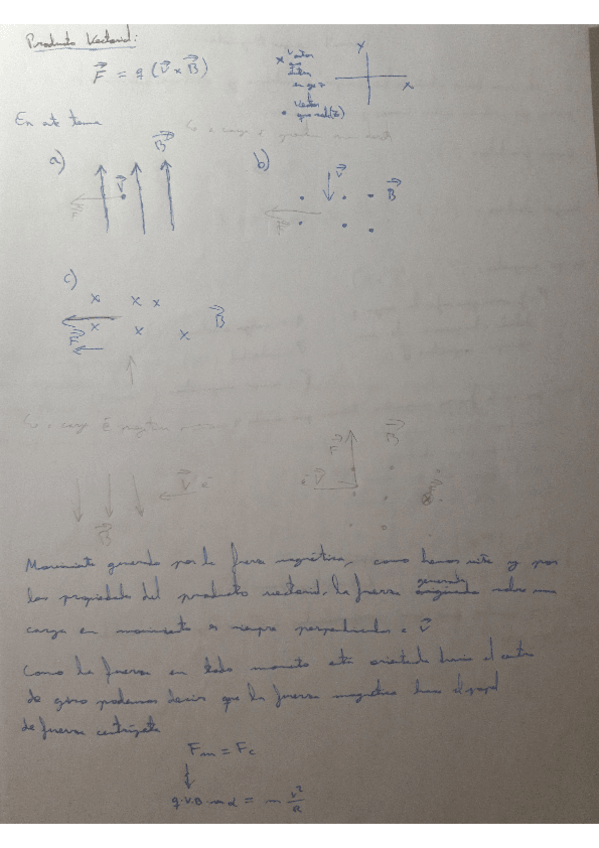 Producto Vectorial:
F = q (v x B)
x Vector
entra
en eje z
• Vector
Y
X
En este tema
a) v B F
b) v B F
c) B F
v e B
F B
e v
Movimiento generado por la fuerza magnética, como hemos visto y por
las propiedades del producto vectorial, la fuerza originada generada sobre una
carga en movimiento es siempre perpendicular a v
Como la fuerza en todo momento está orientada hacia el centro
de giro podemos decir que la fuerza magnética hace el papel
de fuerza centrípeta
Fm = Fc
q·v·B sen α = m v²/R